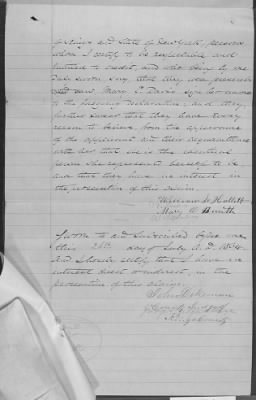 of Kings and State of New York, persons
whom I certify to be respectable and
entitled to credit, and who being by me
duly sworn say that they were present
and saw Mary E. Davis sign her name
to the foregoing declaration; and they
further swear that they have every
reason to believe from the appearance
of the applicant and their acquaintance
with her that she is the identical
person she represents herself to be
and that they have no interest in
the prosecution of this claim.
Mary A. Smith
Sworn to and Subscribed before me
this 26th day of July A.D. 1864
And I hereby certify that I have no
interest direct or indirect, in the
prosecution of this claim.